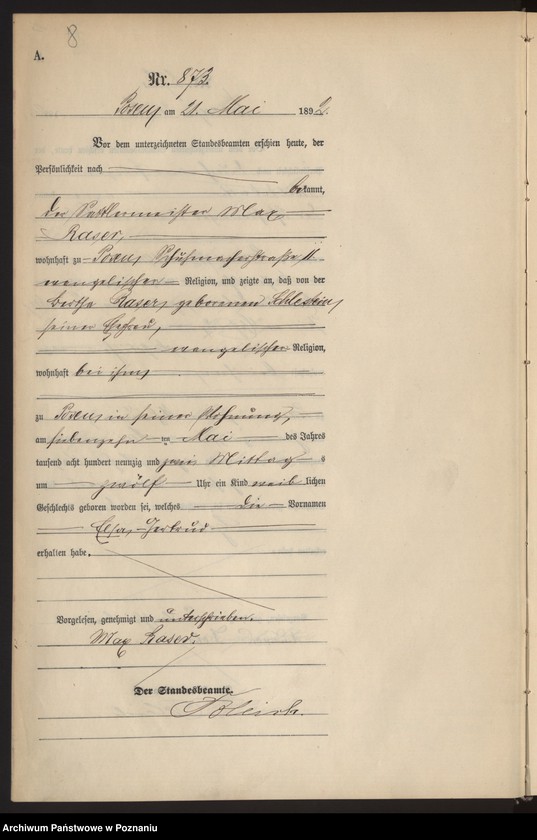 8
A.
Nr. 873.
Posen am 21. Mai 1892.
Vor dem unterzeichneten Standesbeamten erschien heute, der
Persönlichkeit nach
bekannt,
der Sattlermeister Max
Raser,
wohnhaft zu Posen, Schuhmacherstraße 11
evangelischer Religion, und zeigte an, daß von der
Bertha Raser, geborenen
seiner Ehefrau,
evangelischer Religion,
wohnhaft bei ihm
zu Posen in seiner Wohnung,
am siebenzehn ten Mai des Jahres
tausend acht hundert neunzig und zwei Mittag s
um zwölf Uhr ein Kind weib lichen
Geschlechts geboren worden sei, welches die Vornamen
Elsa, Gertrud
erhalten habe.
Vorgelesen, genehmigt und unterschrieben.
Max Raser.
Der Standesbeamte.
Archiwum Państwowe w Poznaniu